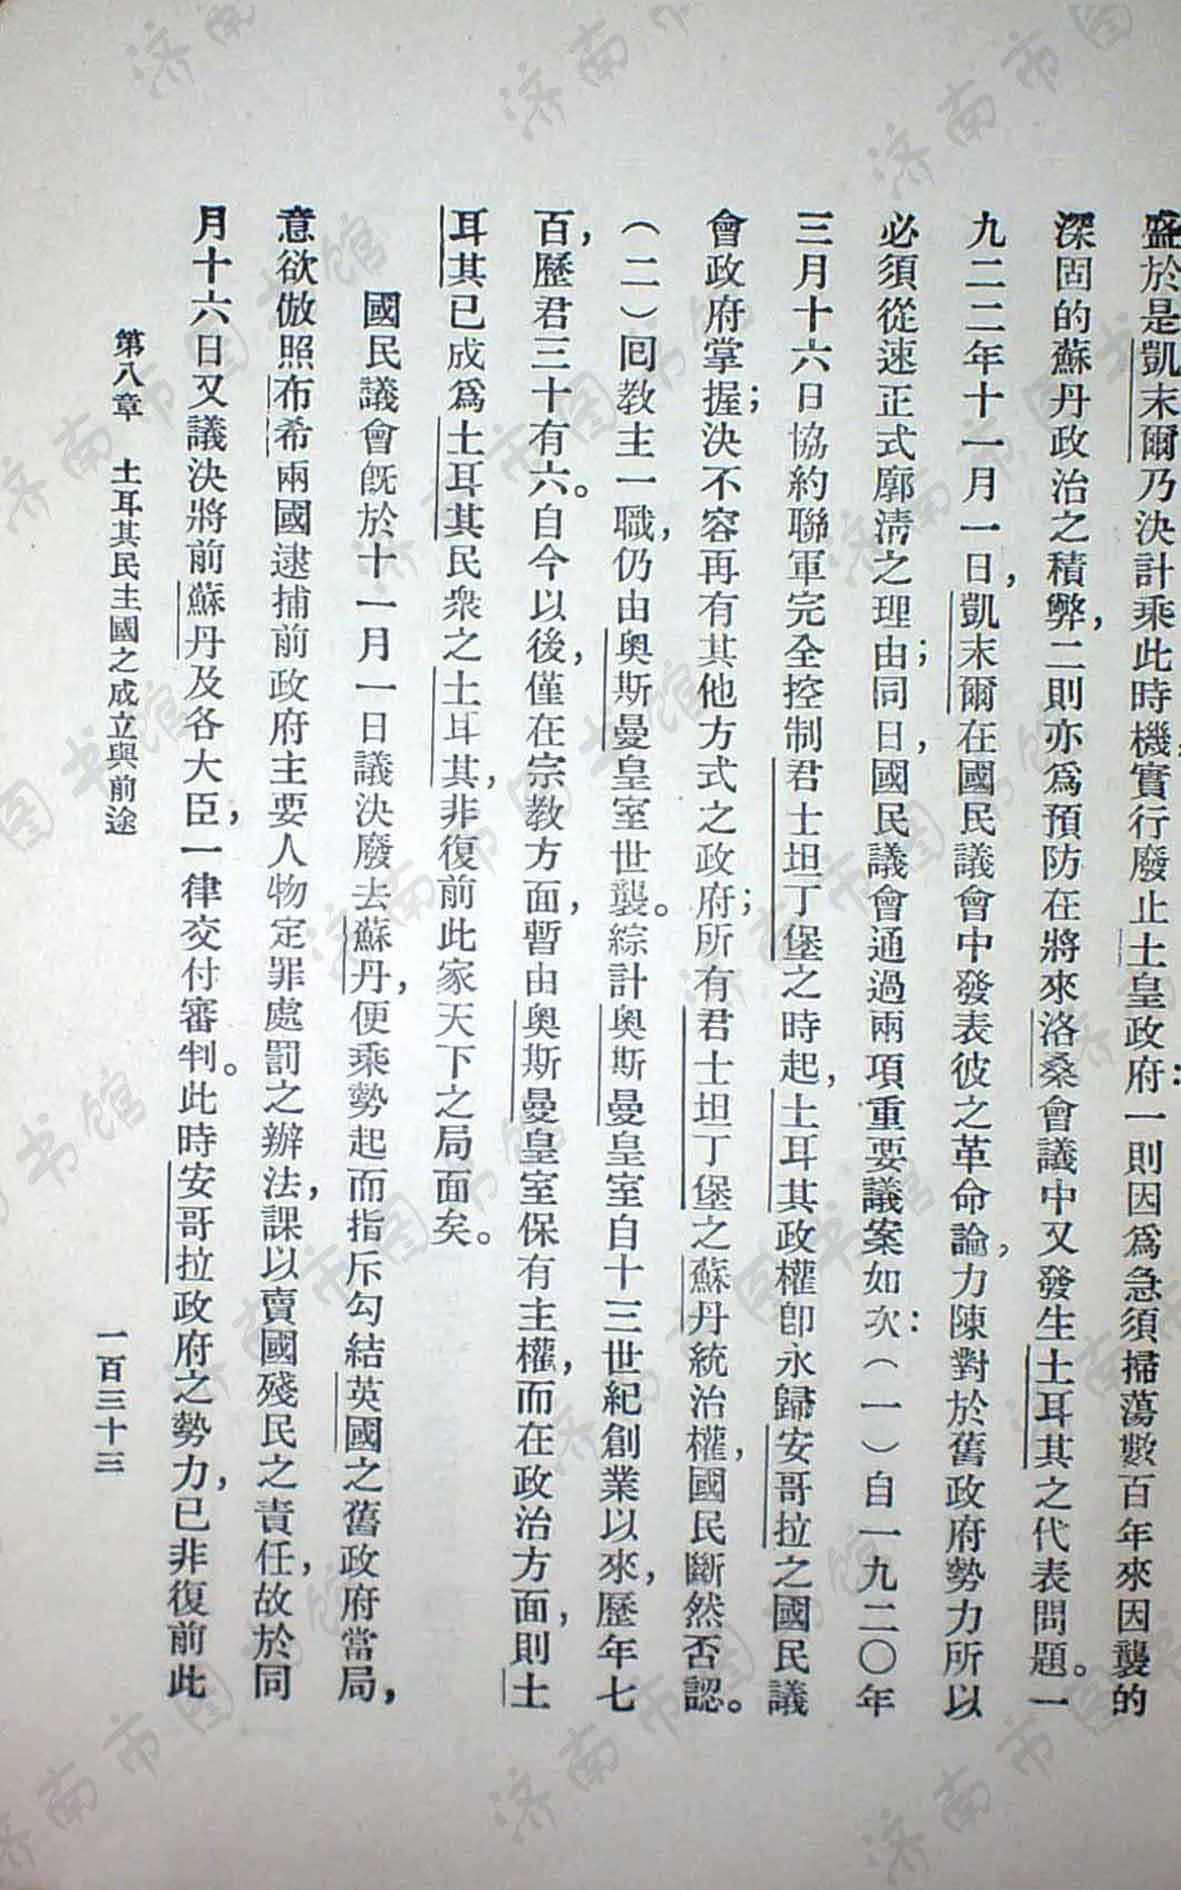 盛於是凱末爾乃決計乘此時機，實行廢止土皇政府：一則因爲急須掃蕩數百年來因襲的
深固的蘇丹政治之積弊，二則亦爲預防在將來洛桑會議中又發生土耳其之代表問題。一
九二二年十一月一日，凱末爾在國民議會中發表彼之革命論，力陳對於舊政府勢力所以
必須從速正式廓清之理由；同日，國民議會通過兩項重要議案如次：（一）自一九二〇年
三月十六日協約聯軍完全控制君士坦丁堡之時起，土耳其政權卽永歸安哥拉之國民議
會政府掌握；決不容再有其他方式之政府；所有君士坦丁堡之蘇丹統治權，國民斷然否認。
（二）囘教主一職，仍由奧斯曼皇室世襲。綜計奧斯曼皇室自十三世紀創業以來，歷年七
百，歷君三十有六。自今以後，僅在宗教方面，暫由奧斯曼皇室保有主權，而在政治方面，則土
耳其已成爲土耳其民衆之土耳其，非復前此家天下之局面矣。
國民議會旣於十一月一日議決廢去蘇丹，便乘勢起而指斥勾結英國之舊政府當局，
意欲倣照布希兩國逮捕前政府主要人物定罪處罰之辦法，課以賣國殘民之責任，故於同
月十六日又議決將前蘇丹及各大臣，一律交付審判。此時安哥拉政府之勢力，已非復前此
第八章　土耳其民主國之成立與前途
一百三十三
济南市图书馆